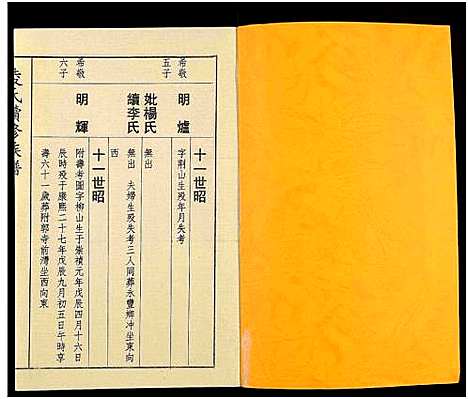 希敬
五子
明爐
十一世昭
字荆山生殁年月失考
妣楊氏
無出
續李氏
無出　夫婦生殁失考三人同葬永豐鄉冲坐東向
西
希敬
六子
明輝
十一世昭
附壽考圖字柳山生于崇禎元年戊辰四月十六日
辰時殁于康熙二十七年戊辰九月初五日午時享
壽六十一歲葬附郭寺前灣坐西向東
氏續修族譜